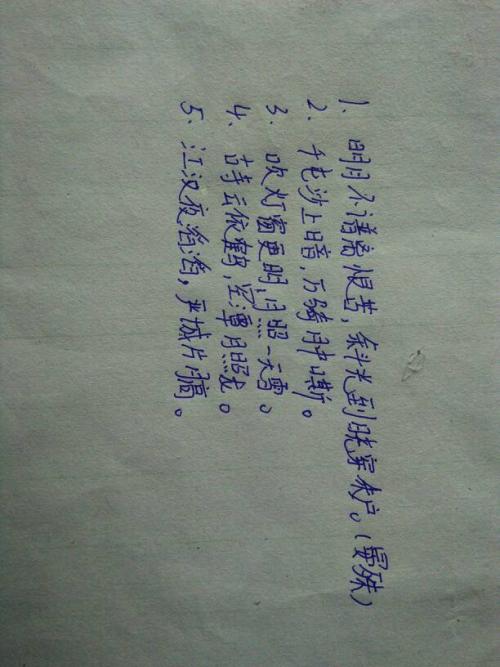 1. 明月不谙离恨苦，斜光到晓穿朱户。（晏殊）
2. 千屯沙上暗，万骑月中嘶。
3. 吹灯窗更明，月照一天雪。
4. 古寺云依鹤，空潭月照龙。
5. 江汉夜滔滔，严城片月高。